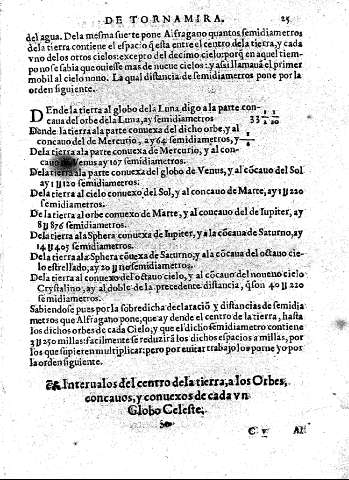 DE TORNAMIRA. 25
del agua. De la mesma suerte pone Alfragano quantos semidiametros
de la tierra contiene el espacio q̃ esta entre el centro de la tierra, y cada
vno de los otros cielos: excepto del decimo cielo: porq̃ en aquel tiem-
po no se sabia que ouiesse mas de nueue cielos: y assi llamauā el primer
mobil al cielo nono. La qual distancia de semidiametros pone por la
orden siguiente.
DEnde la tierra al globo de la Luna, digo a la parte con-
caua del orbe de la Luna, ay semidiametros 33 1/2 1/20
Dende la tierra a la parte conuexa del dicho orbe, y al
concauo del de Mercurio, ay 64 semidiametros, y 1/6
De la tierra a la parte conuexa de Mercurio, y al con-
cauo Venus ay 167 semidiametros.
De la tierra a la parte conuexa del globo de Venus, y al cōcauo del Sol
ay 1 U 120 semidiametros.
De la tierra al cielo conuexo del Sol, y al concauo de Marte, ay 1 U 220
semidiametros.
De la tierra al orbe conuexo de Marte, y al concauo del de Iupiter, ay
8 U 876 semidiametros.
De la tierra a la Sphera conuexa de Iupiter, y a la cōcaua de Saturno, ay
14 U 405 semidiametros.
De la tierra a la Sphera cōuexa de Saturno, y a la cōcaua del octauo cie-
lo estrellado, ay 20 U 110 semidiametros.
De la tierra al conuexo del octauo cielo, y al cōcauo del noueno cielo
Crystalino, ay al doble de la precedente distancia, q̃ son 40 U 220
semidiametros.
Sabiendose pues por la sobredicha declaraciō y distancias de semidia
metros que Alfragano pone, que ay dende el centro de la tierra, hasta
los dichos orbes de cada Cielo, y que el dicho semidiametro contiene
3 U 250 millas: facilmente se reduzirā los dichos espacios a millas, por
los que supieren multiplicar: pero por euitar trabajo los porne yo por
la orden siguiente.
Interualos del centro de la tierra, a los Orbes,
concauos, y conuexos de cada vn
Globo Celeste.
C v Al